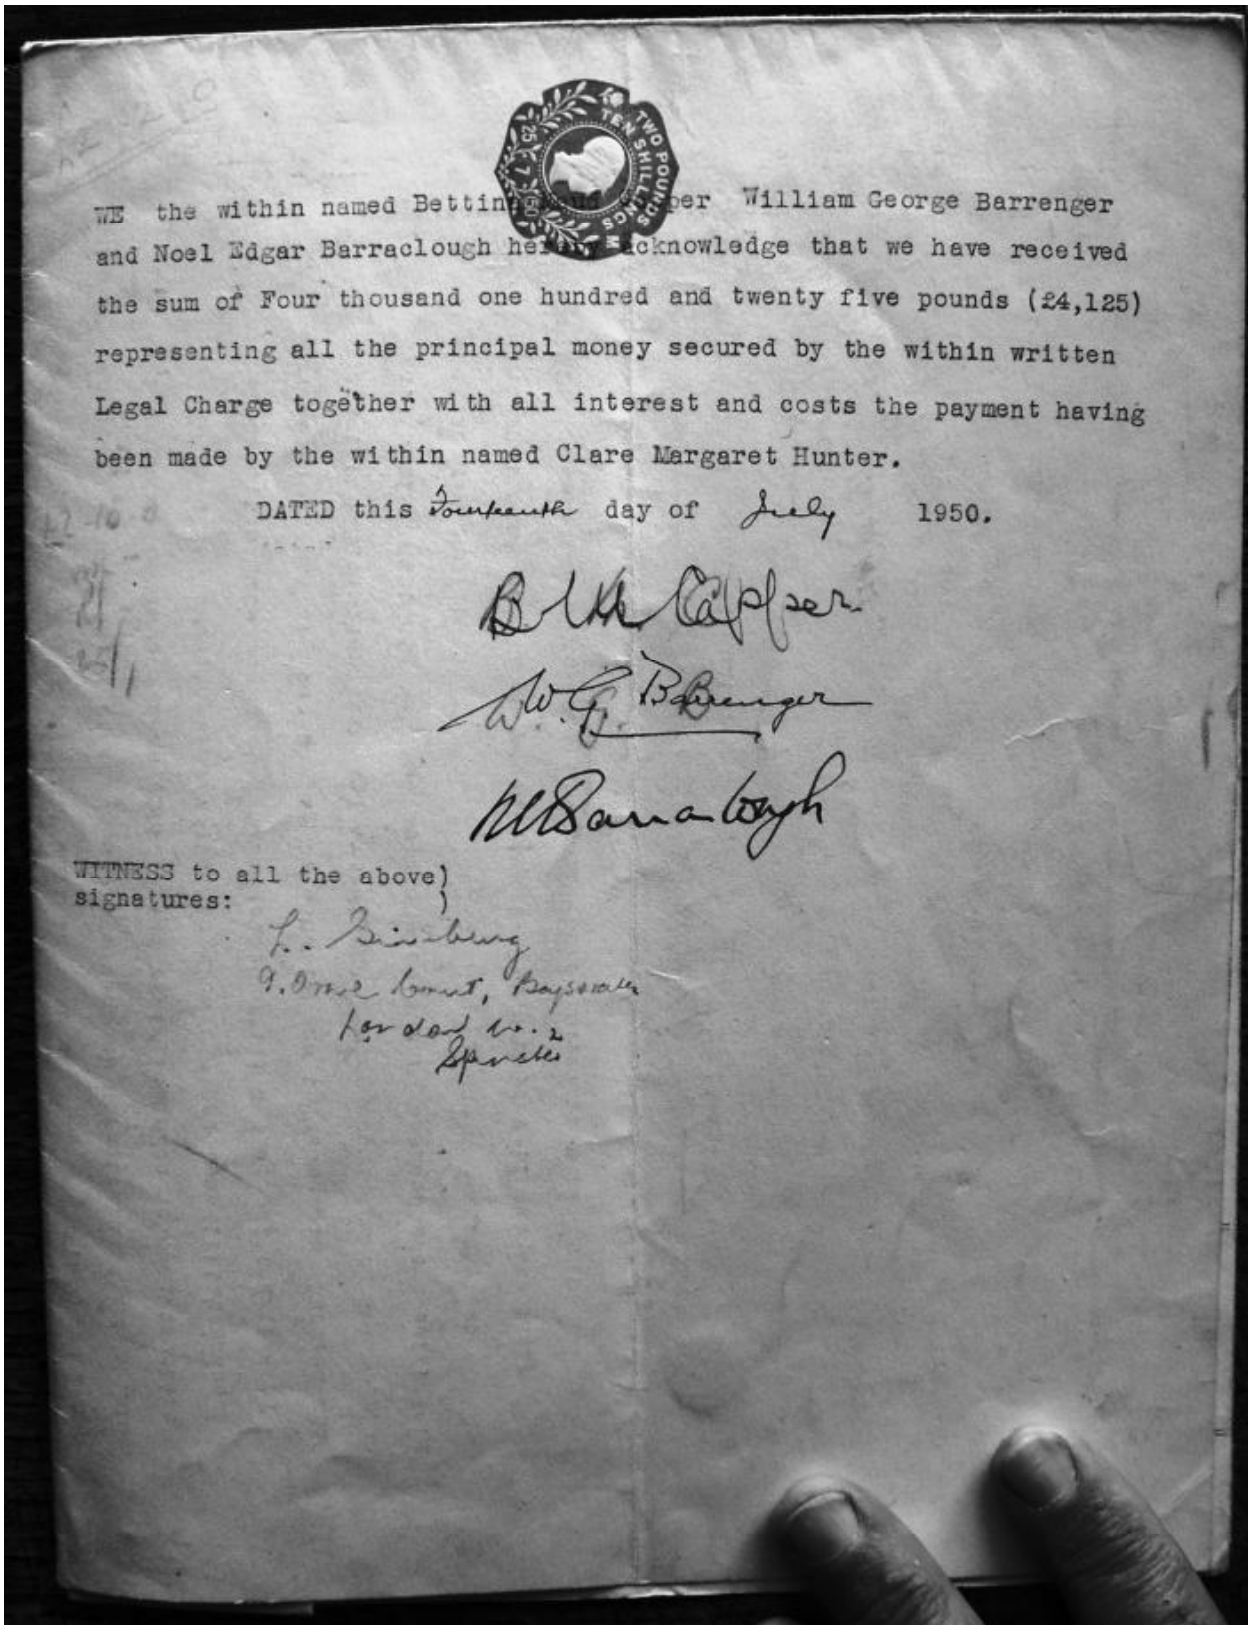 TWO POUNDS
TEN SHILLINGS
25 7 50
WE the within named Bettina Maud Capper William George Barrenger
and Noel Edgar Barraclough hereby acknowledge that we have received
the sum of Four thousand one hundred and twenty five pounds (£4,125)
representing all the principal money secured by the within written
Legal Charge together with all interest and costs the payment having
been made by the within named Clare Margaret Hunter.
DATED this Fourteenth day of July 1950.
B M Capper
W. G. Barrenger
NEBarraclough
WITNESS to all the above)
signatures: )
L. Ginsburg
Court, Bayswater
London W.2